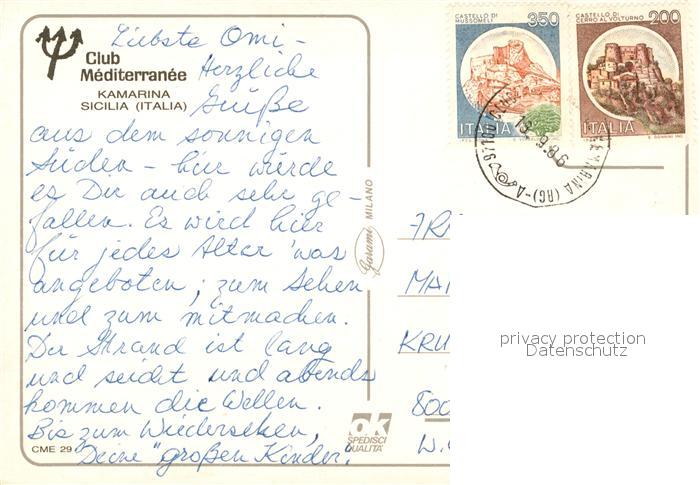 Club
Méditerranée
KAMARINA
SICILIA (ITALIA)
Liebste Omi -
Herzliche
Grüße
aus dem sonnigen
Süden - hier würde
es Dir auch sehr ge-
fallen. Es wird hier
für jedes Alter was
angeboten, zum Sehen
und zum mitmachen.
Der Strand ist lang
und seicht und abends
kommen die Wellen.
Bis zum Wiedersehen,
Deine "großen Kinder".
CME 29
Garami MILANO
OK
SPEDISCI
QUALITÀ
CASTELLO DI
MUSSOMELI
350
ITALIA
CASTELLO DI
CERRO AL VOLTURNO
200
ITALIA
MARINA (RG)-A
MAI
KRU
800
W.
privacy protection
Datenschutz